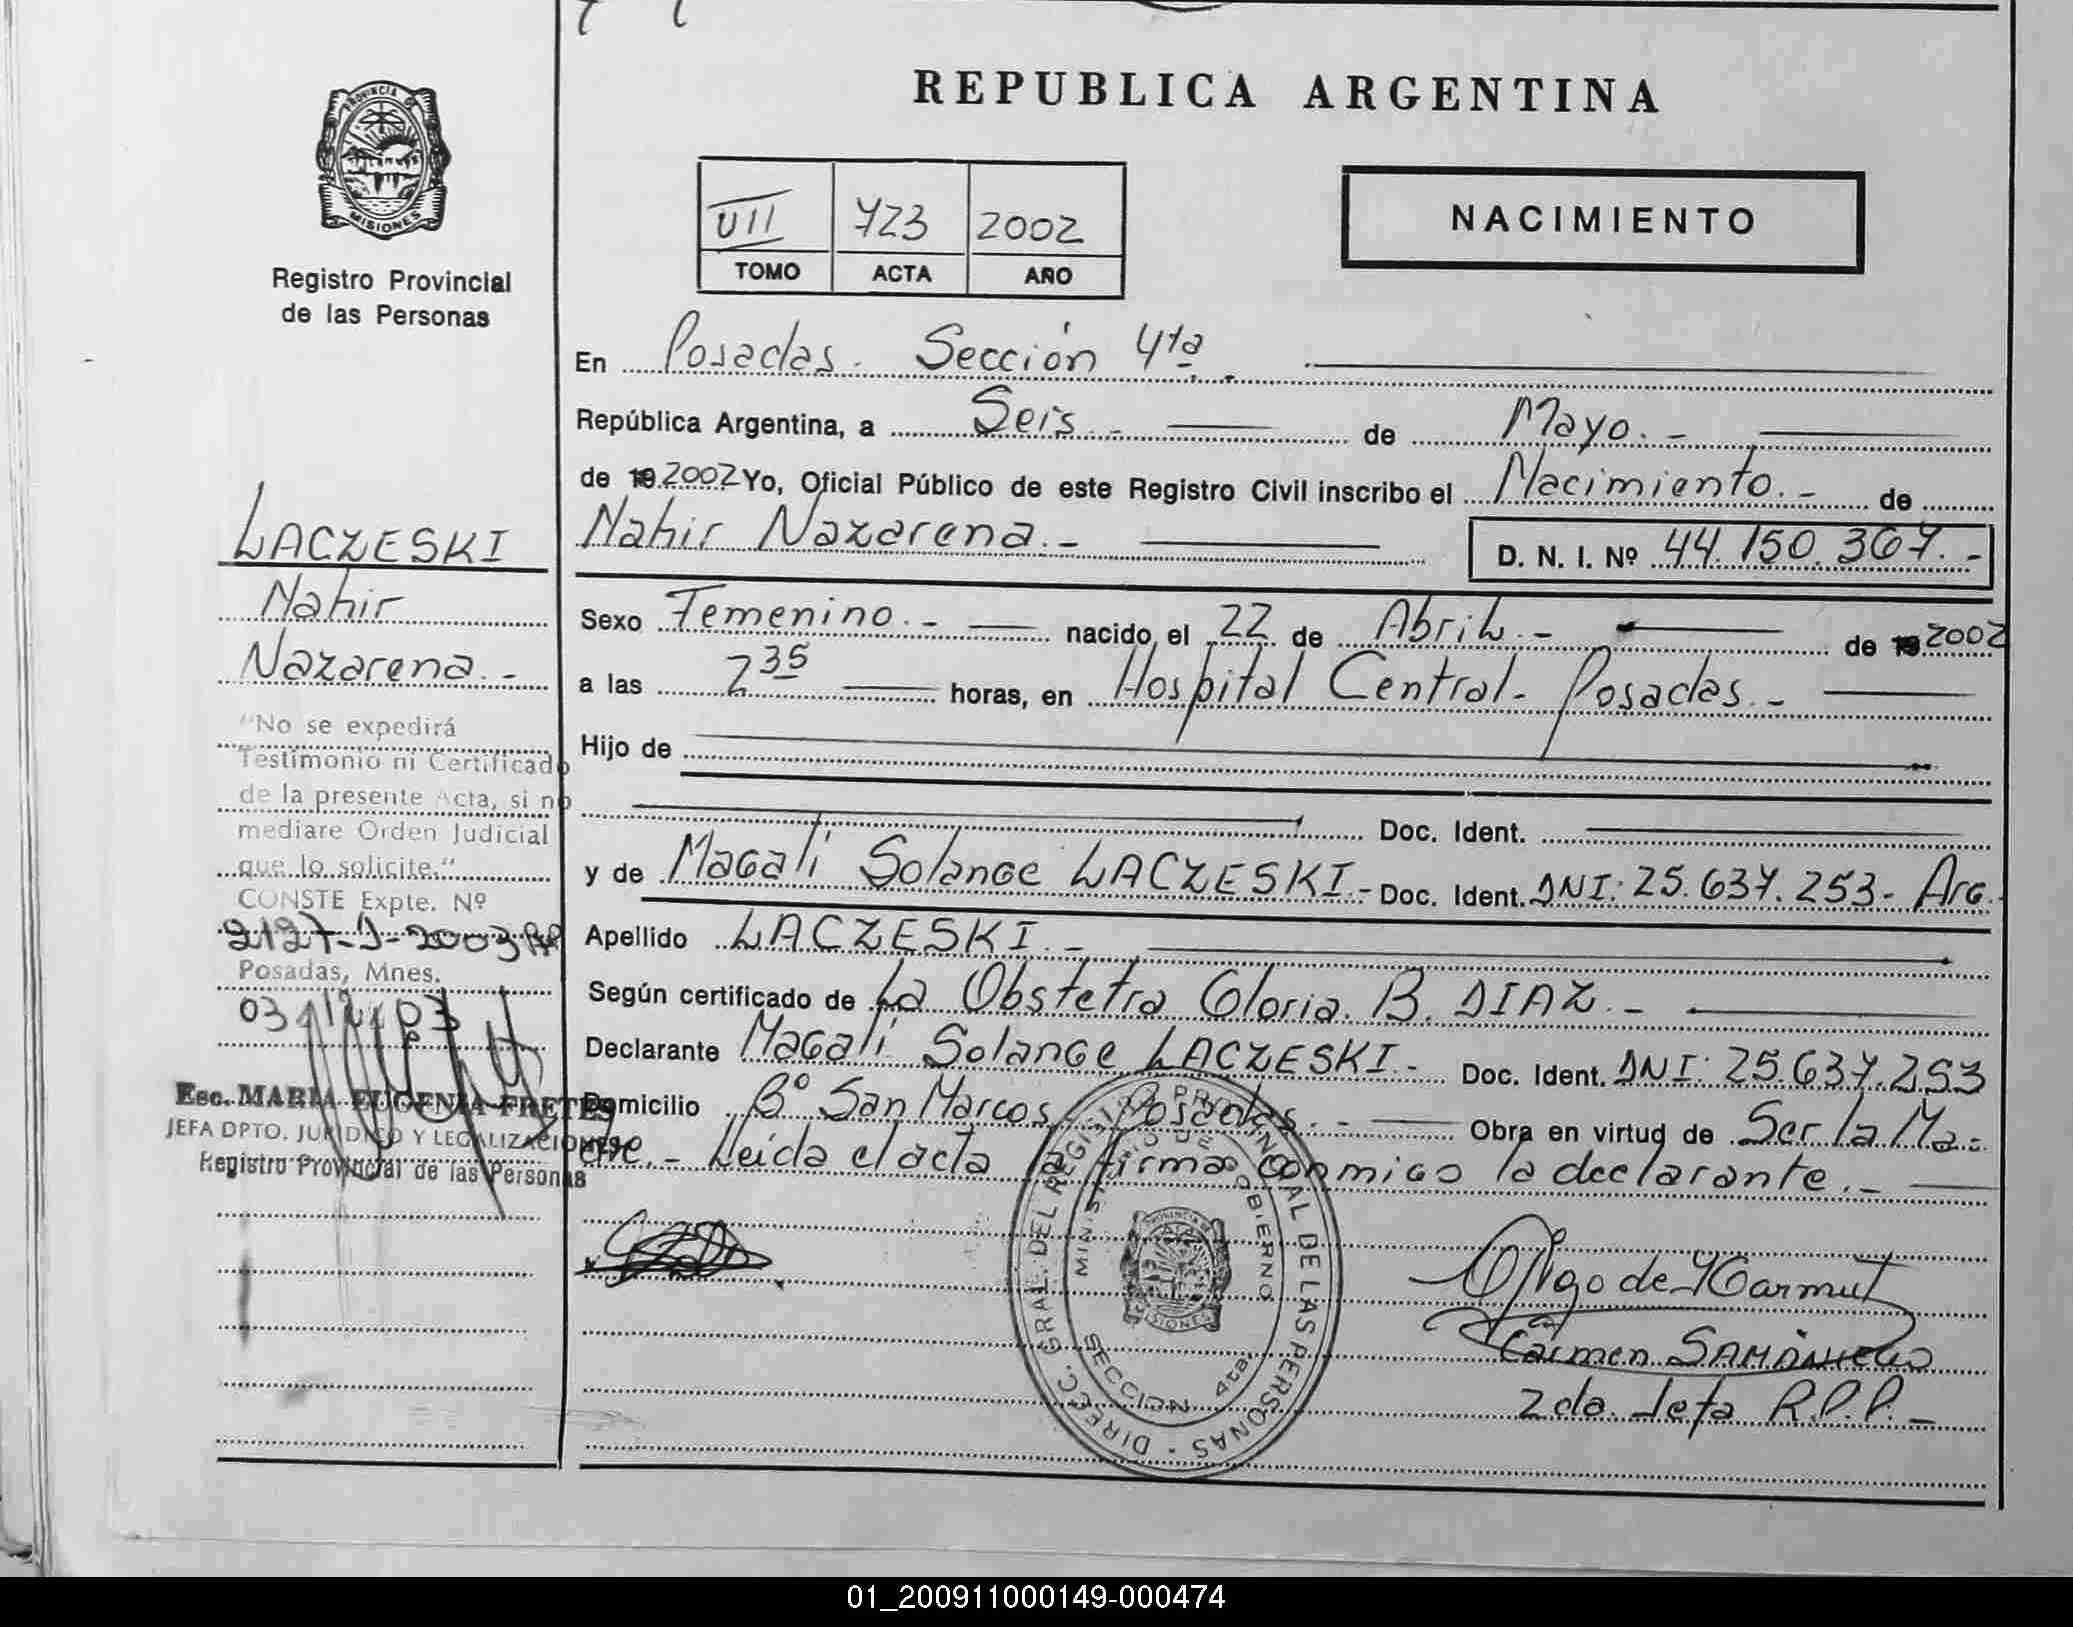 REPUBLICA ARGENTINA
PROVINCIA DE
MISIONES
Registro Provincial
de las Personas
VII 723 2002
TOMO ACTA AÑO
NACIMIENTO
En Posadas. Sección 4ta. -
República Argentina, a Seis. - de Mayo. -
de 19 2002 Yo, Oficial Público de este Registro Civil inscribo el Nacimiento. - de
Nahir Nazarena. - D. N. I. Nº 44.150.367. -
Sexo Femenino. - nacido, el 22 de Abril. - de 19 2002
a las 2 35 horas, en Hospital Central - Posadas. -
Hijo de
Doc. Ident.
y de Magali Solange LACZESKI. - Doc. Ident. DNI: 25.637.253 - Arg.
Apellido LACZESKI. -
Según certificado de La Obstetra Gloria. B. DIAZ. -
Declarante Magali Solange LACZESKI. - Doc. Ident. DNI: 25.637.253
Domicilio Bº San Marcos, Posadas. - Obra en virtud de Ser la Ma-
dre. - Leída el acta la firma conmigo la declarante. -
LACZESKI
Nahir
Nazarena. -
"No se expedirá
Testimonio ni Certificado
de la presente Acta, si no
mediare Orden Judicial
que lo solicite."
CONSTE Expte. Nº
Posadas, Mnes.
03/12/03
Esc. MARIA EUGENIA FRETES
JEFA DPTO. JURIDICO Y LEGALIZACIONES
Registro Provincial de las Personas
DIREC. GRAL. DEL REGISTRO PROVINCIAL DE LAS PERSONAS
MINISTERIO DE GOBIERNO
PROVINCIA DE
MISIONES
SECCION 4ta.
Carmen SAMANIEGO
2da. Jefa R.P.P. -
01_200911000149-000474